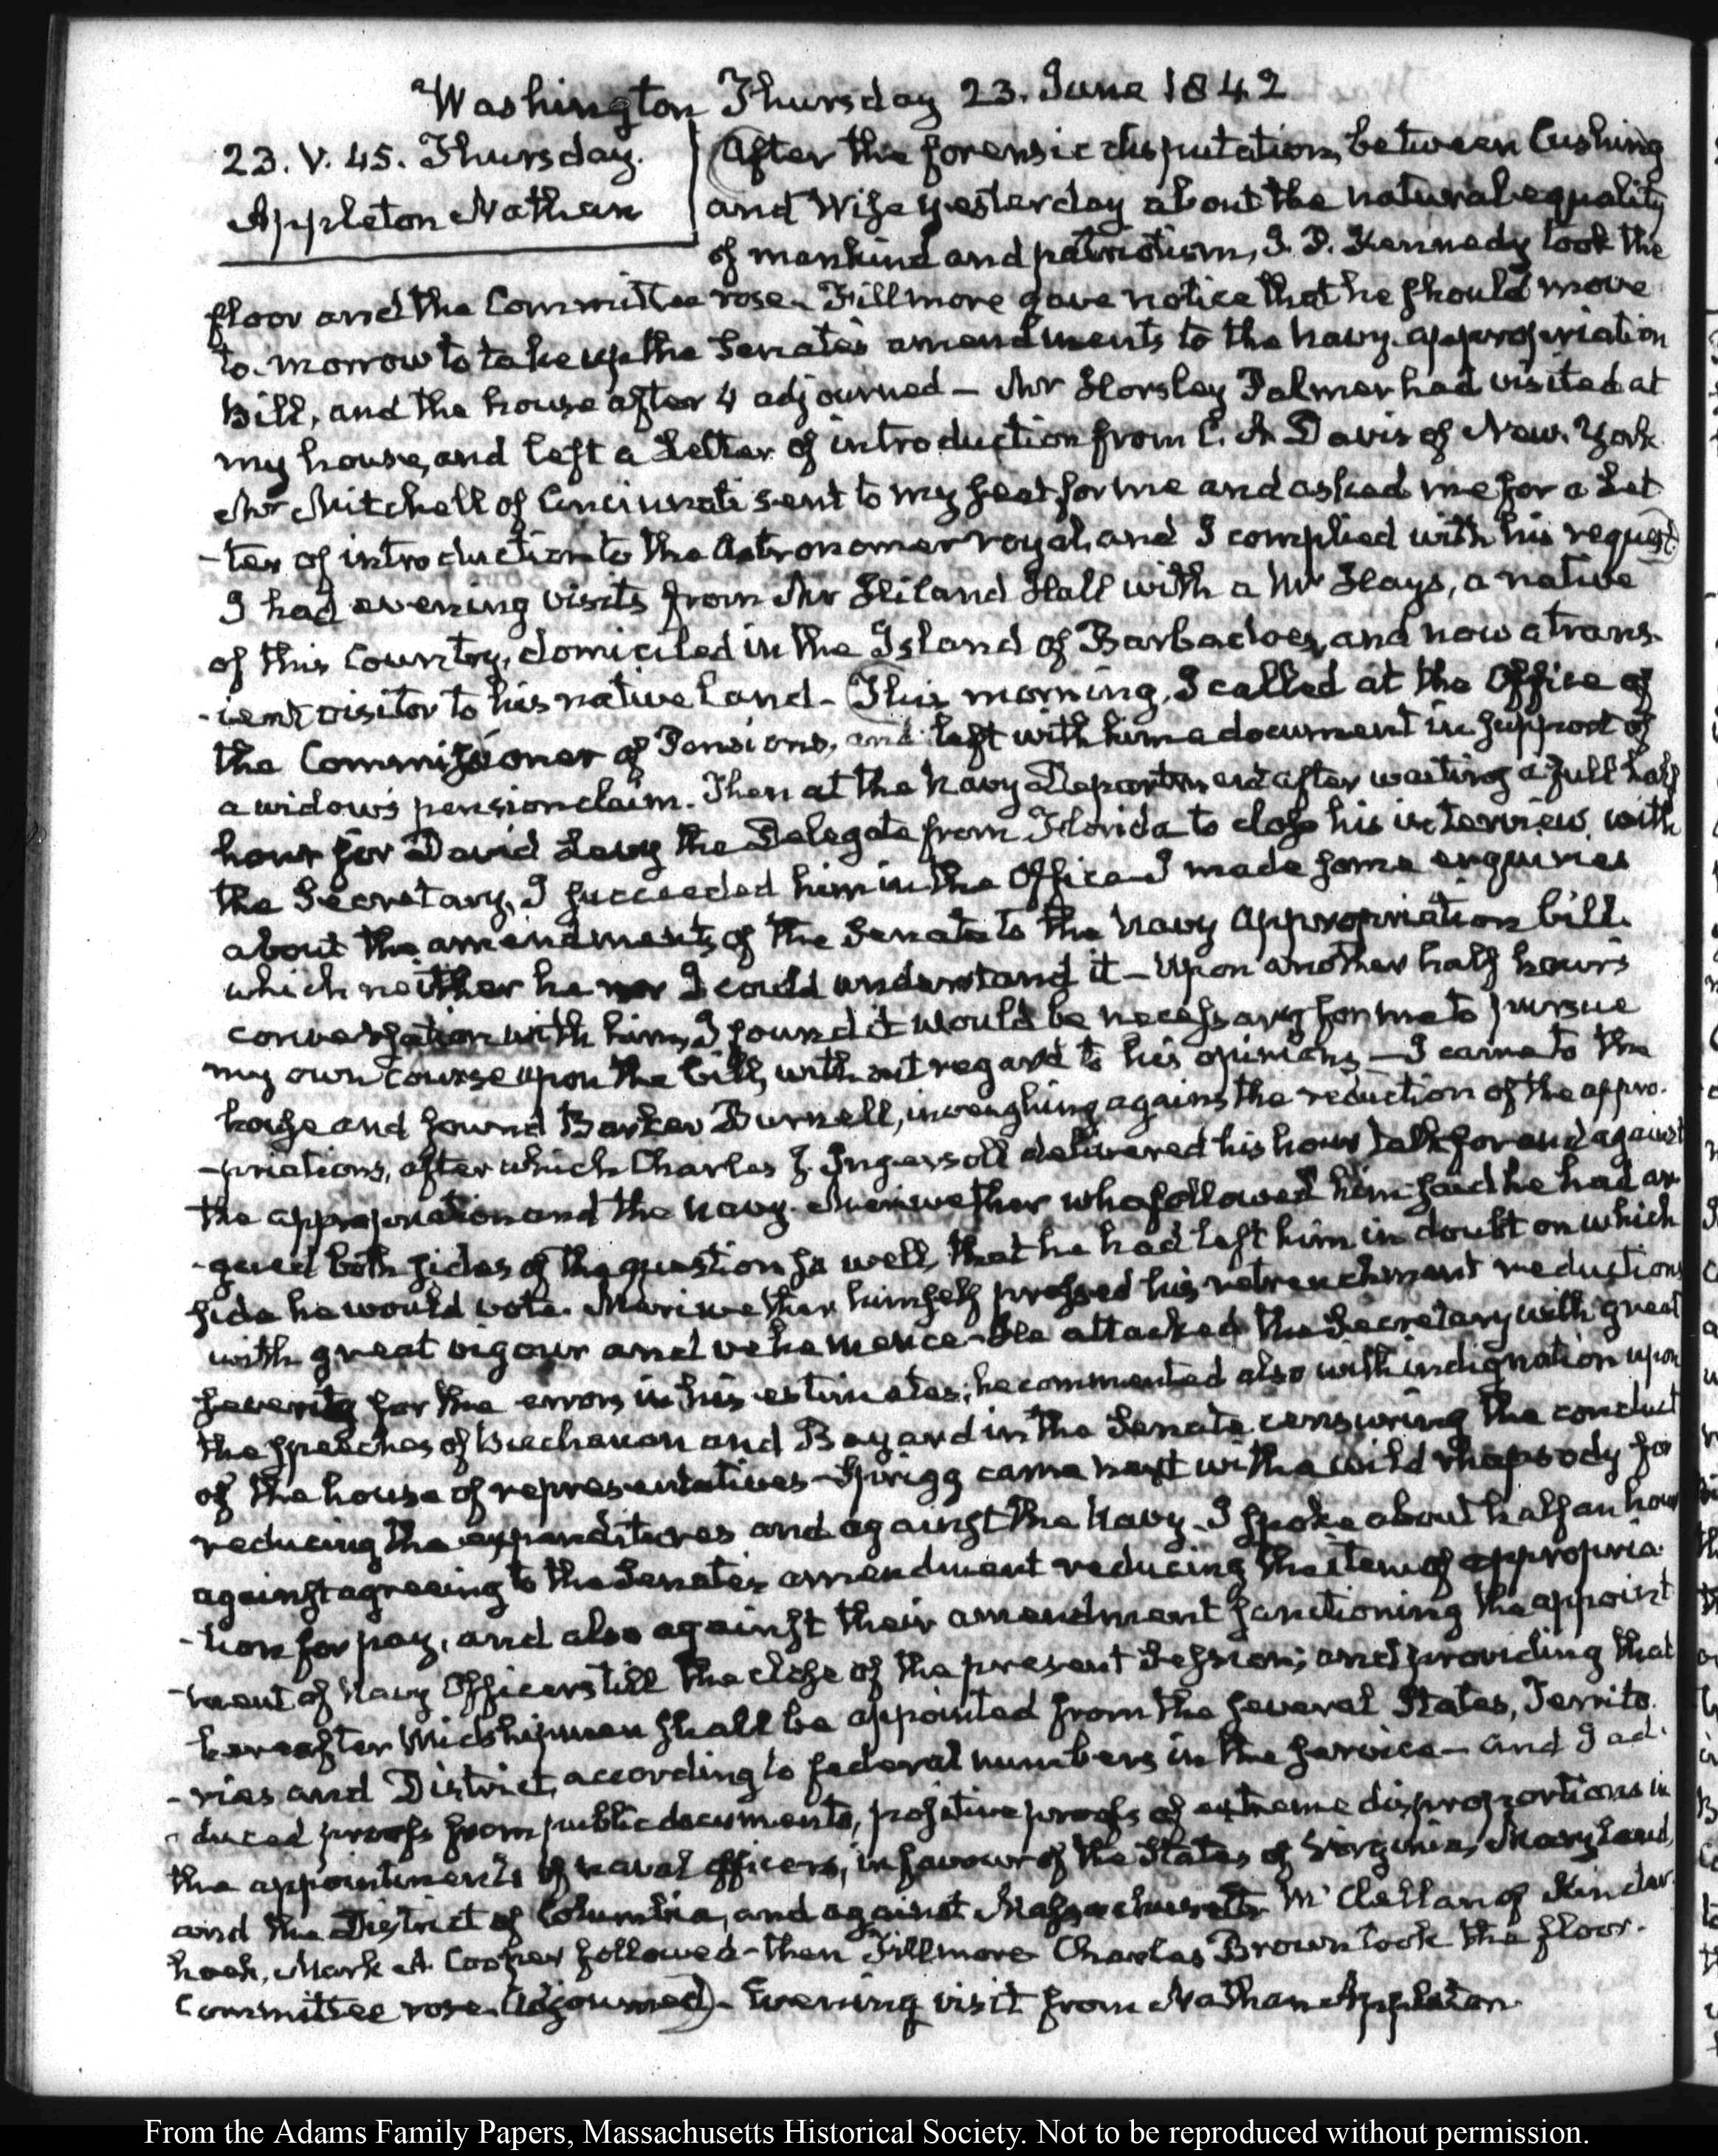 Washington Thursday 23. June 1842
23. V. 45. Thursday.
Appleton Nathan
After the forensic disputation, between Cushing
and Wise yesterday about the natural equality
of mankind and patriotism, J. P. Kennedy took the
floor and the Committee rose. Fillmore gave notice that he should move
to-morrow to take up the Senate's amendments to the navy appropriation
Bill, and the house after 4 adjourned — Mr Horsley Palmer had visited at
my house, and left a Letter of introduction from C. A Davis of New-York
Mr Mitchell of Cincinnati sent to my seat for me and asked me for a Let
-ter of introduction to the Astronomer royal, and I complied with his request
I had evening visits from Mr Hiland Hall with a Mr Hays, a native
of this Country, domiciled in the Island of Barbadoes, and now a trans-
-ient visitor to his native Land - This morning, I called at the Office of
the Commissioner of Pensions, and left with him a document in support of
a widow's pension claim. Then at the Navy Department after waiting a full half
hour for David Levy the Delegate from Florida to close his interview with
the Secretary, I succeeded him in the Office I made some enquiries
about the amendments of the Senate to the Navy appropriation bill
which neither he nor I could understand it — Upon another half hour's
conversation with him, I found it would be necessary for me to pursue
my own course upon the bill, without regard to his opinions — I came to the
house and found Barker Burnell, inveighing against the reduction of the appro-
-priations, after which Charles J. Ingersoll delivered his hour talk for and against
the appropriation and the navy. Meriwether who followed him said he had ar
-gued both sides of the question so well, that he had left him in doubt on which
side he would vote. Meriwether himself pressed his retrenchment reductions
with great vigour and vehemence - He attacked the Secretary with great
severity for the errors in his estimates; he commented also with indignation upon
the speeches of Buchanan and Bayard in the Senate censuring the conduct
of the house of representatives - Sprigg came next with a wild rhapsody for
reducing the expenditures and against the Navy. I spoke about half an hour
against agreeing to the Senate's amendment reducing the item of appropria-
-tion for pay, and also against their amendment sanctioning the appoint
-ment of Navy Officers till the close of the present Session; and providing that
hereafter Midshipmen shall be appointed from the several States, Territo-
-ries and District, according to federal numbers in the service — and I ad-
-duced proofs from public documents, positive proofs of extreme disproportions in
the appointments of naval officers, in favour of the States of Virginia, Maryland,
and the District of Columbia, and against Massachusetts McClellan of Kinder-
hook, Mark A Cooper followed - then Fillmore Charles Brown took the floor.
Committee rose. Adjourned - Evening visit from Nathan Appleton.
From the Adams Family Papers, Massachusetts Historical Society. Not to be reproduced without permission.